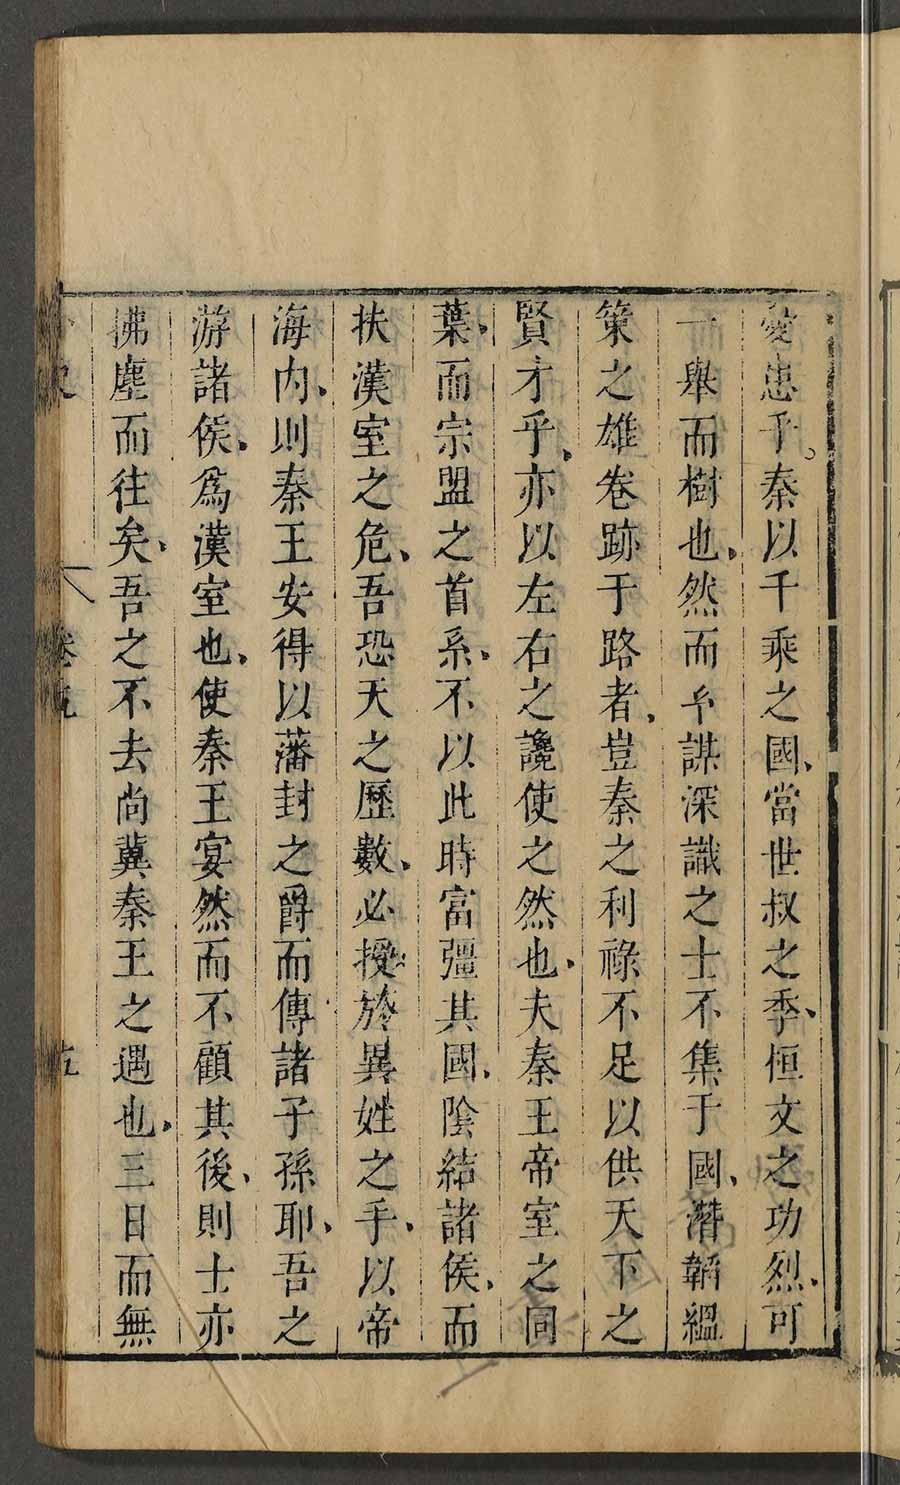 憂患乎。秦以千乘之國、當世叔之季、恒文之功烈、可
一舉而樹也、然而弘謀深識之士不集于國、濳韜緼
策之雄卷跡于路者、豈秦之利祿不足以供天下之
賢才乎、亦以左右之讒使之然也、夫秦王帝室之同
葉、而宗盟之首系、不以此時富彊其國、陰結諸侯、而
扶漢室之危、吾恐天之歷數、必授於異姓之手、以帝
海内、則秦王安得以藩封之爵而傳諸子孫耶、吾之
游諸侯、爲漢室也、使秦王宴然而不顧其後、則士亦
拂塵而往矣、吾之不去尚冀秦王之遇也、三日而無
卷九
五